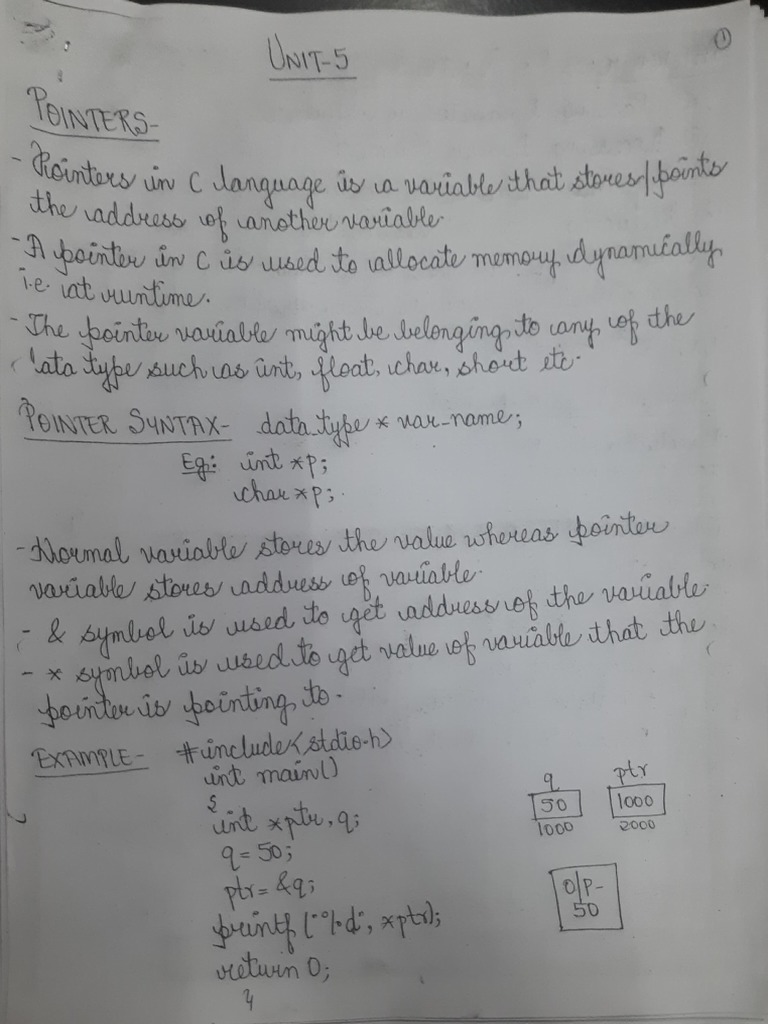 ①
UNIT-5
POINTERS-
- Pointers in C language is a variable that stores/points
the address of another variable.
- A pointer in C is used to allocate memory dynamically
i.e. at runtime.
- The pointer variable might be belonging to any of the
data type such as int, float, char, short etc.
POINTER SYNTAX- data_type * var_name;
Eg: int *p;
char *p;
- Normal variable stores the value whereas pointer
variable stores address of variable.
- & symbol is used to get address of the variable.
- * symbol is used to get value of variable that the
pointer is pointing to.
EXAMPLE- #include<stdio.h>
int main()
{
int *ptr, q;
q = 50;
ptr = &q;
printf("%d", *ptr);
return 0;
}
q ptr
50 1000
1000 2000
O/P-
50